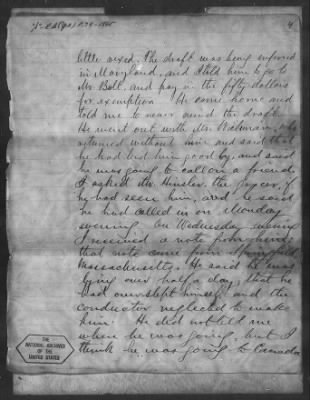 4
little vexed. The draft was being enforced
in Maryland, and I told him to go to
Mr. Bell, and pay in the fifty dollars
for exemption. He came home and
told me to never mind the draft.
He went out with Mr. who
returned without him and said that
he had bid him good by, and said
he was going to call on a friend.
I asked Mr. the if
he had seen him, and he said
he had called in on Monday
evening. On Wednesday evening
I received a note from him;
that note came from Springfield
Massachusetts. He said he was
lying over half a day, that he
had over slept himself and the
conductor neglected to wake
him. He did not tell me
where he was going, but I
think he was going to Canada
THE
NATIONAL ARCHIVES
OF THE
UNITED STATES